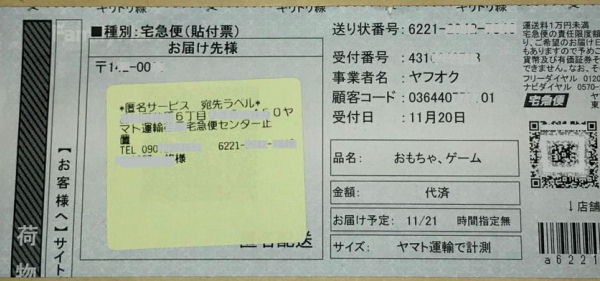 キリトリ線
キリトリ線
■種別：宅急便（貼付票）
お届け先様
〒14 -00
*匿名サービス 宛先ラベル*
6丁目 0ヤ
マト運輸 宅急便センター止
置
TEL 090 6221-
様
匿名配送
【お客様へ】サイト
荷物
送り状番号：6221-
受付番号：431
事業者名：ヤフオク
顧客コード：036440 01
受付日：11月20日
品名： おもちゃ、ゲーム
金額： 代済
お届け予定：11/21 時間指定無
サイズ： ヤマト運輸で計測
運送料1万円未満
宅急便の責任限度額
、ご希望のお届け日
もありますので予めご
貨幣及び有価証券そ
できません。なお、そ
フリーダイヤル 0120
ナビダイヤル 0570-
宅急便
↓店舗
a6221